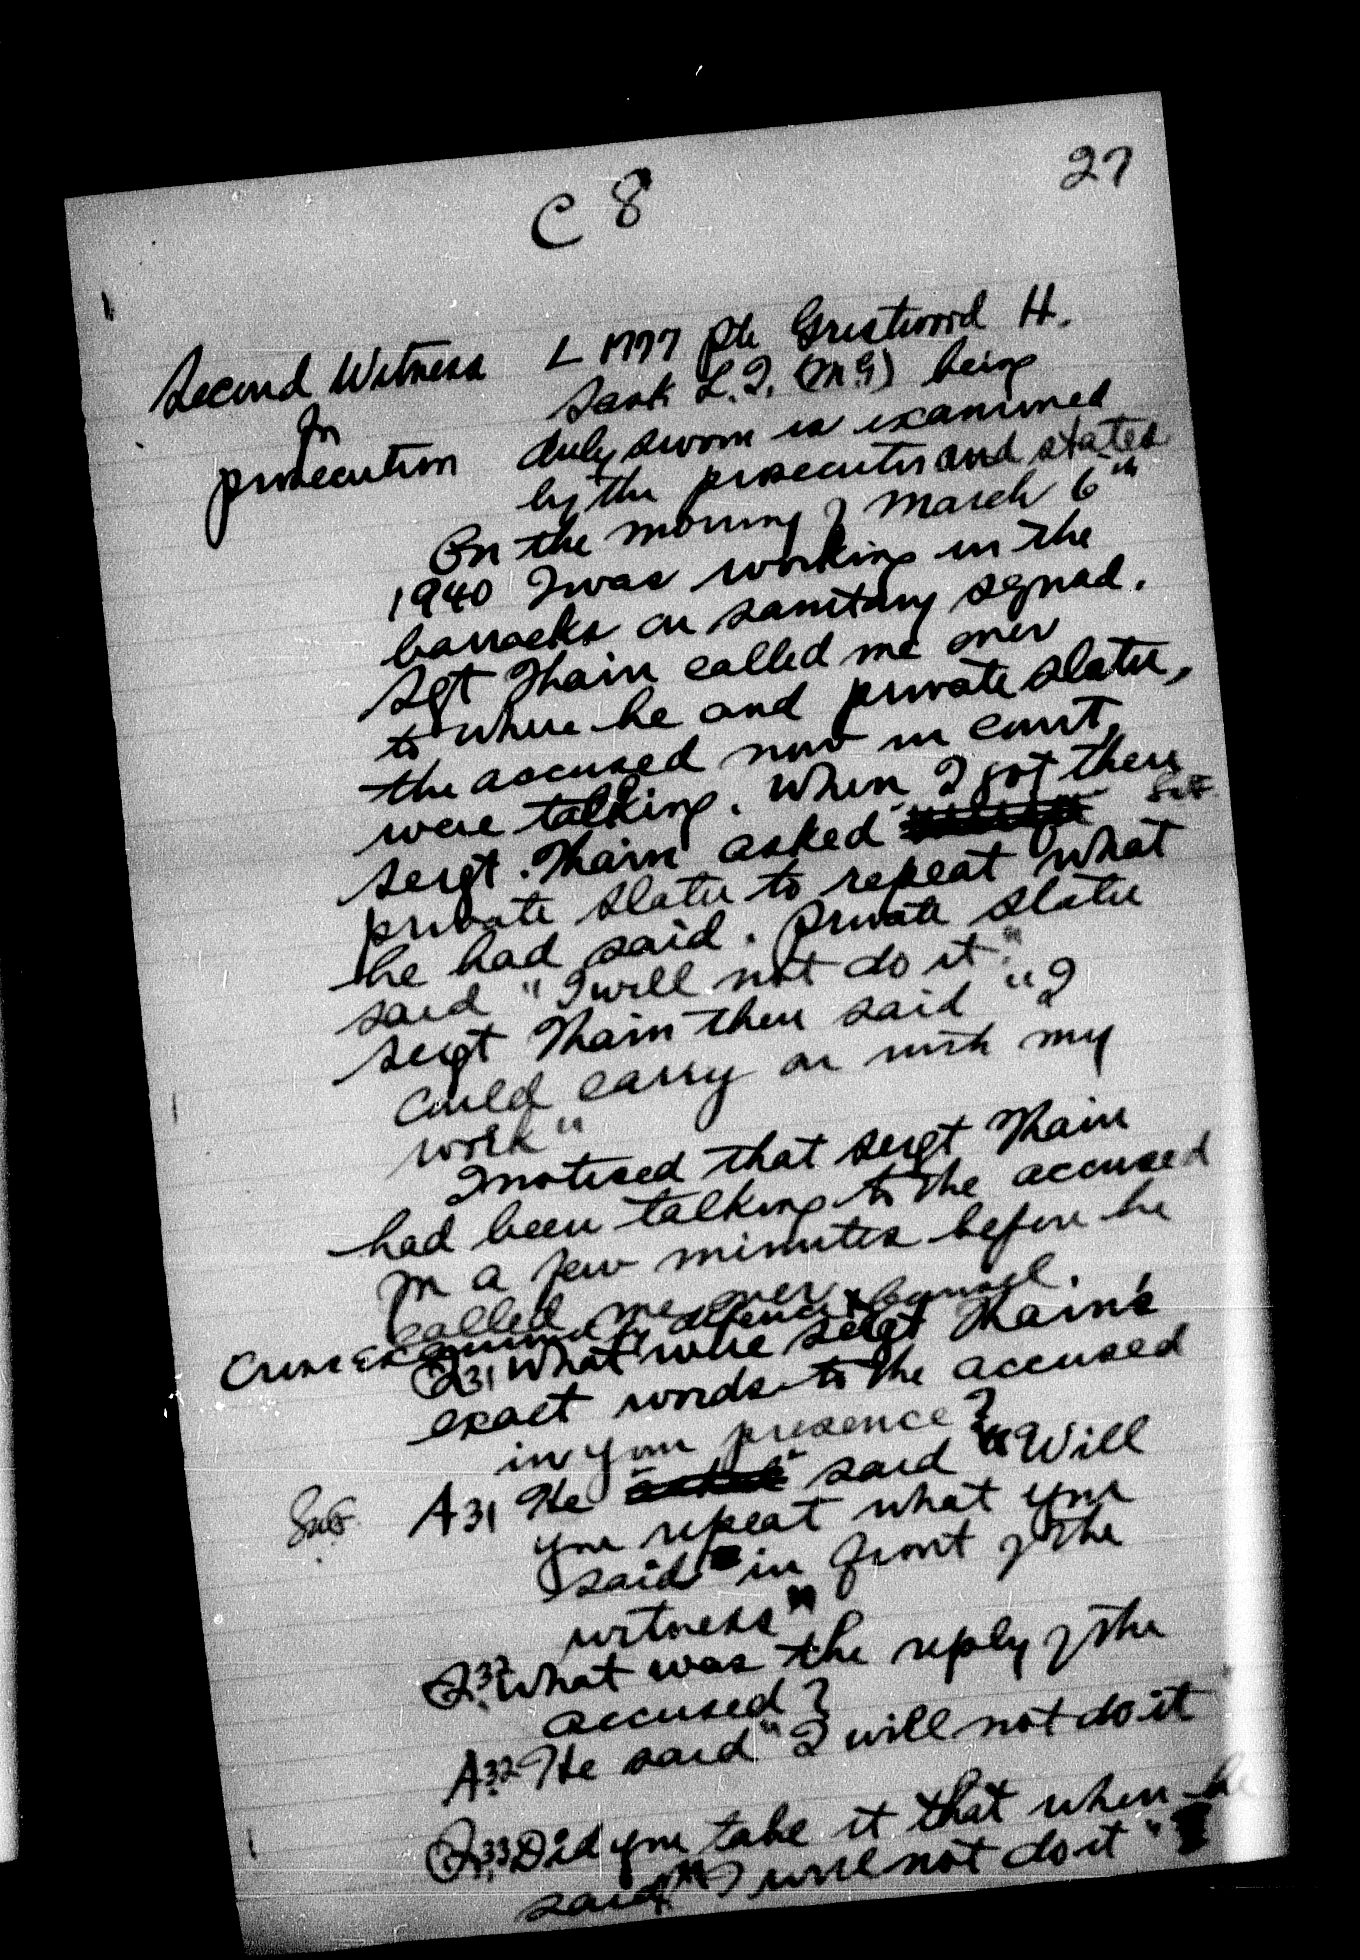 C 8
27
Second Witness L 1777 Pte Gristwood H.
for Sask L.I. (M.G) being
prosecution duly sworn is examined
by the prosecutor and states
On the morning of March 6th
1940 I was working in the
barracks on sanitary squad.
Sgt Thain called me over
to where he and private Slater,
the accused now in court,
were talking. When I got there
Sergt. Thain asked
private Slater to repeat what
he had said. Private Slater
said "I will not do it."
Sergt Thain then said "I
could carry on with my
work"
I noticed that Sergt Thain
had been talking to the accused
for a few minutes before he
called me over.
Cross examined by defence counsel.
Q31 What were Sergt Thain's
exact words to the accused
in your presence?
A31 He said "Will
you repeat what you
said in front of the
witness"
Q32 What was the reply of the
accused?
A32 He said "I will not do it"
Q33 Did you take it that when he
said "I will not do it"